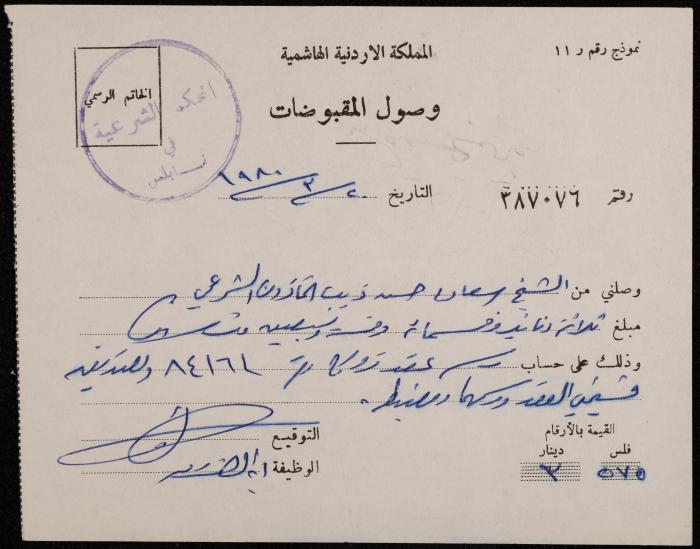 نموذج رقم ر ١١
المملكة الاردنية الهاشمية
وصول المقبوضات
الخاتم الرسمي
المحكمة الشرعية
في
نابلس
رقم ٣٨٧٠٧٦
التاريخ ٢٠/٣/١٩٨٠
وصلني من الشيخ حسن ذيب المأذون الشرعي
مبلغ ثلاثة دنانير وخمسمائة وخمسة وسبعين
وذلك على حساب رسم عقد زواج رقم ٨٤١٦١
العقد
القيمة بالأرقام
فلس دينار
٥٧٥ ٣
التوقيع
الوظيفة